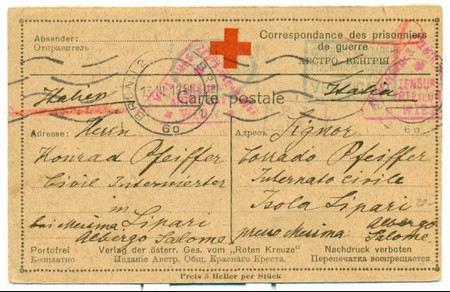 Absender:
Отправитель
Correspondance des prisonniers
de guerre
АВСТРО-ВЕНГРІЯ
Italien
Carte postale
Italia
BRÜNN 2
BRNO 2
6a
ZENSUR
WIEN
Adresse: Herrn
Konrad Pfeiffer
Civil Internierter
in
bei Messina Lipari
Albergo Salome
Адресъ: Signor
Corrado Pfeiffer
Internato civile
Isola Lipari
presso Messina Albergo
Salome
Portofrei
Безплатно
Verlag der österr. Ges. vom „Roten Kreuze"
Изданіе Австр. Общ. Краснаго Креста.
Nachdruck verboten
Перепечатка воспрещается
Preis 5 Heller per Stück